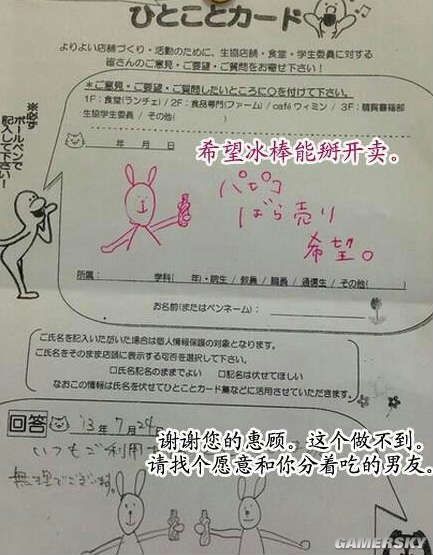 ひとことカード
よりよい店舗づくり・活動のために、生協店舗・食堂・学生委員に対する
皆さんのご意見・ご要望・ご質問をお寄せ下さい!
※ご意見・ご要望・ご質問したいところに○を付けて下さい。
1F:食堂(ランチェ) / 2F:食品専門(ファーム) / café ウィミン / 3F:購買書籍部
生協学生委員 / その他( )
※必ず
ボールペンで
記入して下さい!
年 月 日
希望冰棒能掰开卖。
パピコ
ばら売り
希望。
所属: 学科( 年)・院生 / 教員 / 職員 / 通信生 / その他( )
お名前(またはペンネーム):
ご氏名を記入いただいた場合は個人情報保護の対象となります。
ご氏名をそのまま店頭に表示する可否を選択して下さい。
□氏名記名のままでよい □記名は伏せてほしい
なおこの情報は氏名を伏せてひとことカード集などに活用させていただきます。
回答
'13年7月24日
いつもご利用
谢谢您的惠顾。这个做不到。
请找个愿意和你分着吃的男友。
無理でございます。
GAMERSKY